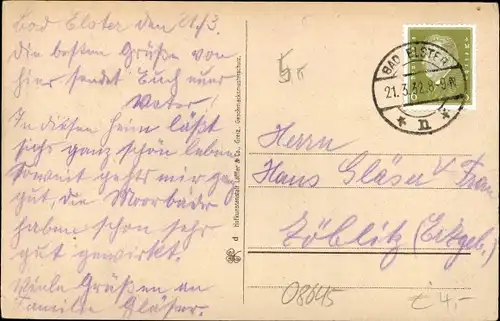 Bad Elster den 21/3.
Die besten Grüße von
hier sendet Euch euer
Vater!
In diesem Heim läßt
sichs ganz schön leben
Soweit gehts mir ganz
gut, die Moorbäder
haben schon sehr
gut gewirkt.
Viele Grüßen an
Familie Gläser.
BAD ELSTER
21.3.32.8-9
* n *
Herrn
Hans Gläser u Frau
Zöblitz (Erzgeb.)
08645
€ 4.-
d
Hofkunstanstalt Löffler & Co., Greiz. Geschmacksmusterschutz.